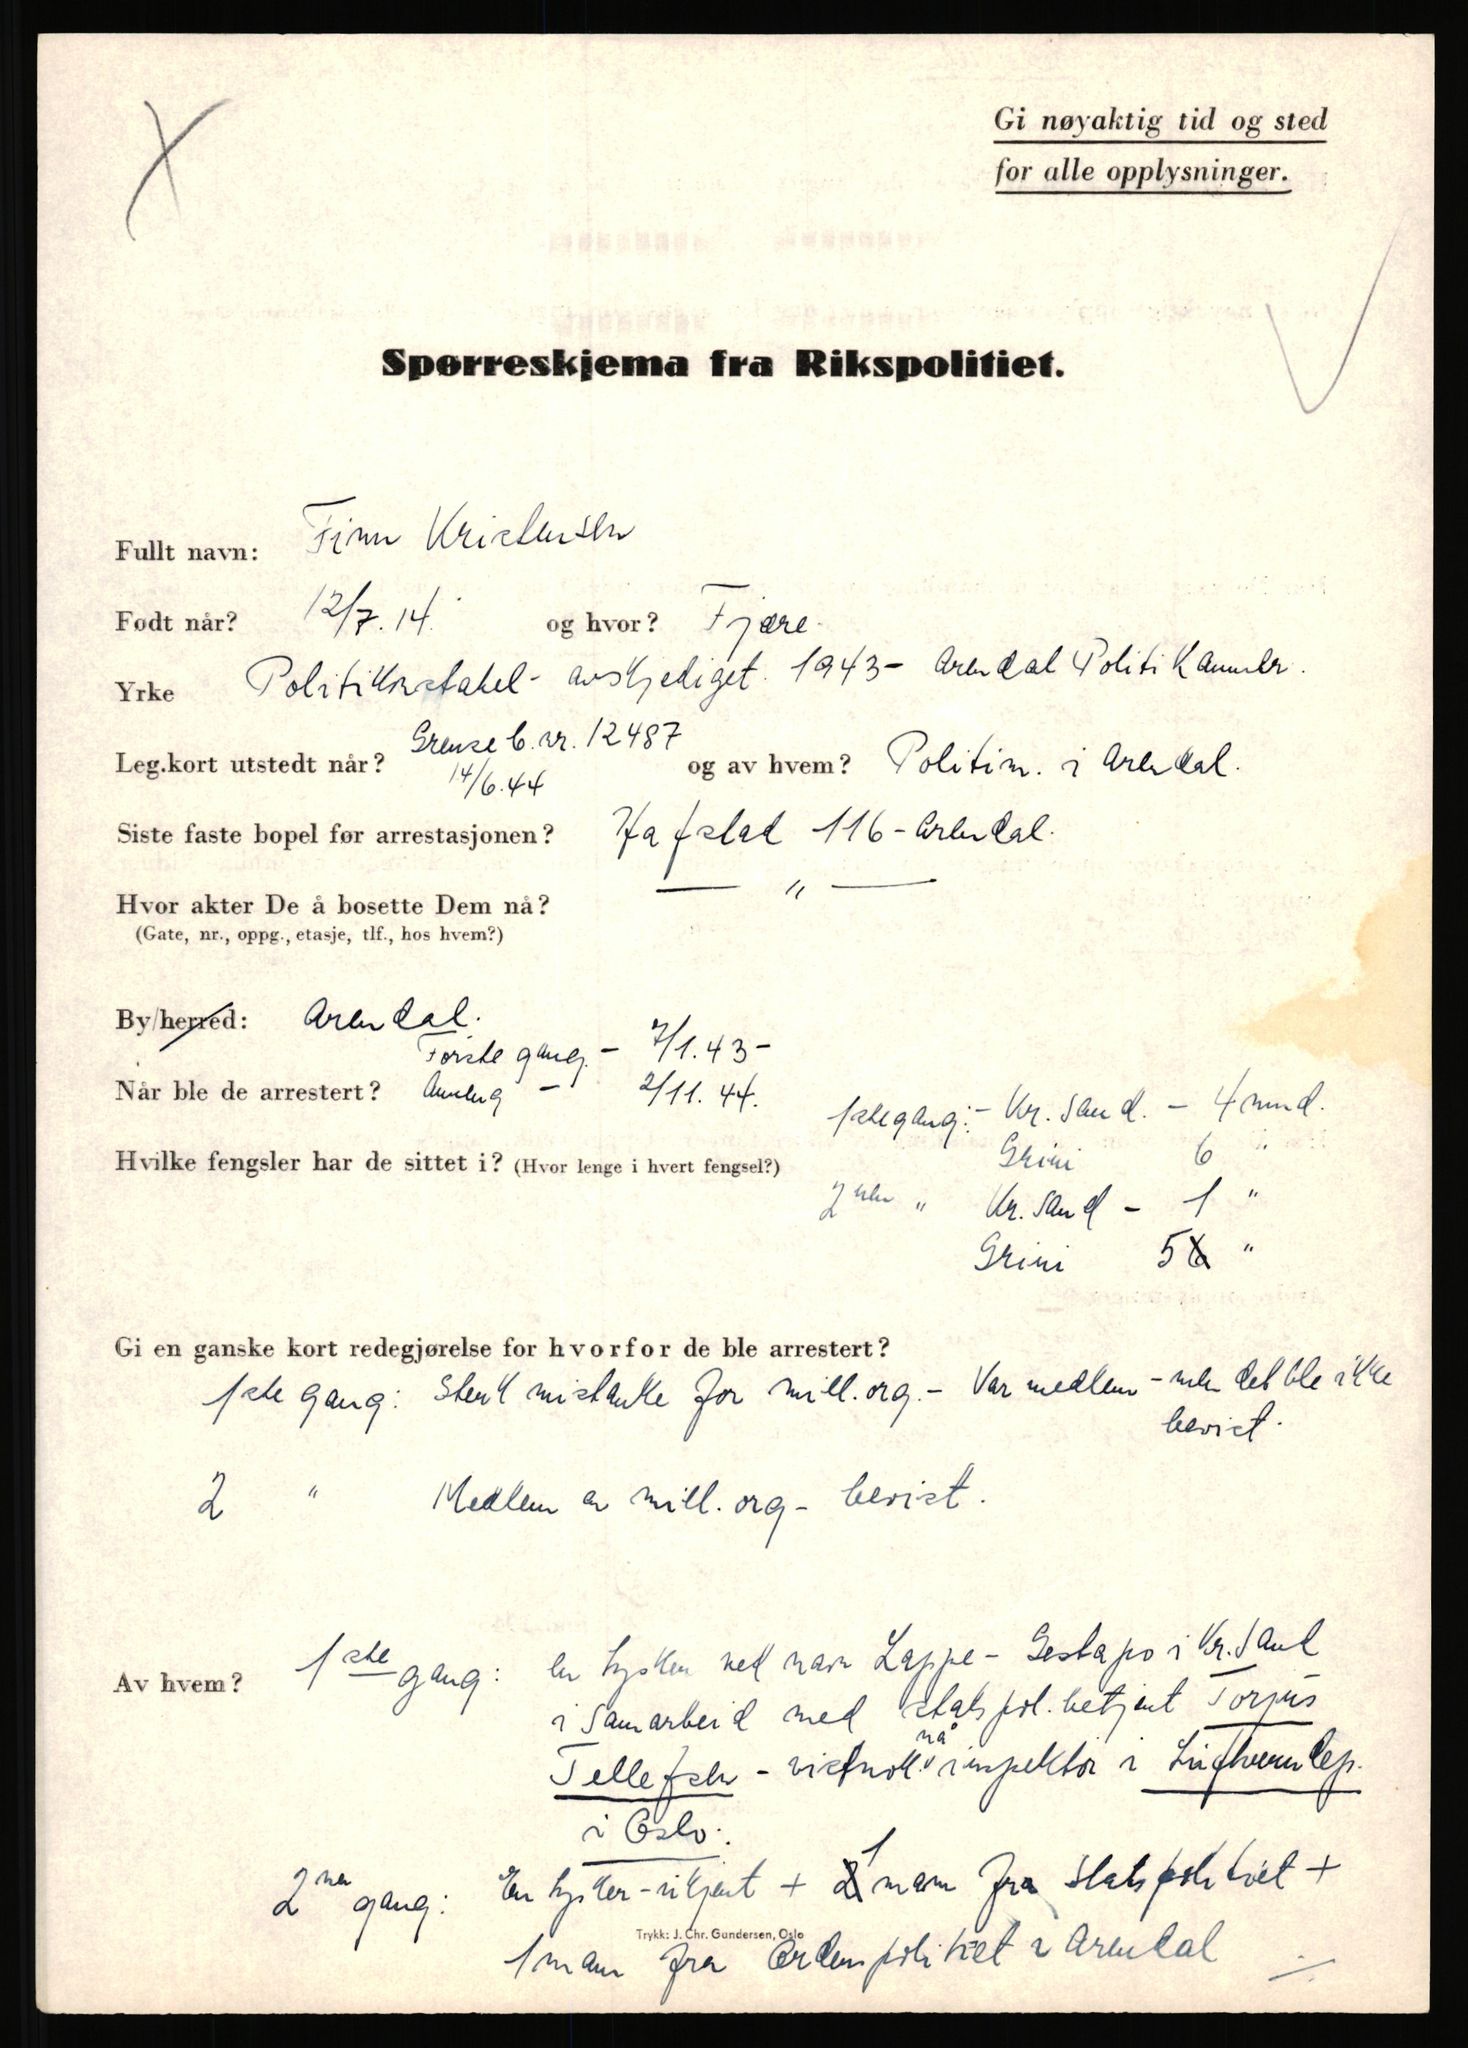 Gi nøyaktig tid og sted
for alle opplysninger.
Spørreskjema fra Rikspolitiet.
Fullt navn: Finn Kristensen
Født når? 12/7.14. og hvor? Fjære.
Yrke Politikonstabel - avskjediget. 1943 - Arendal Politikammer.
Grense b. nr. 12487
Leg.kort utstedt når? 14/6.44 og av hvem? Politim. i Arendal.
Siste faste bopel før arrestasjonen? Hafstad 116 - Arendal.
Hvor akter De å bosette Dem nå? — " —
(Gate, nr., oppg., etasje, tlf., hos hvem?)
By/herred: Arendal.
Første gang. - 7/1.43 -
Når ble de arrestert? Annen g - 2/11.44.
1ste gang: - Kr. Sand. - 4 mnd.
Hvilke fengsler har de sittet i? (Hvor lenge i hvert fengsel?) Grini 6 "
2nen " Kr. Sand - 1 "
Grini 5 "
Gi en ganske kort redegjørelse for hvorfor de ble arrestert?
1ste gang: Sterk mistanke for mill. org. - Var medlem - men det ble ikke
bevist.
2 " Medlem av mill. org - bevist.
Av hvem? 1ste gang: En tysker ved navn Lappe - Gestapo i Kr. Sand
i samarbeid med statspol. betjent Torjus
Tellefsen - vistnok nå inspektør i Luftverndep.
i Oslo.
2nen gang: En tysker - ukjent + 1 mann fra statspolitiet +
Trykk: J. Chr. Gundersen, Oslo
1 mann fra Ordenspolitiet i Arendal